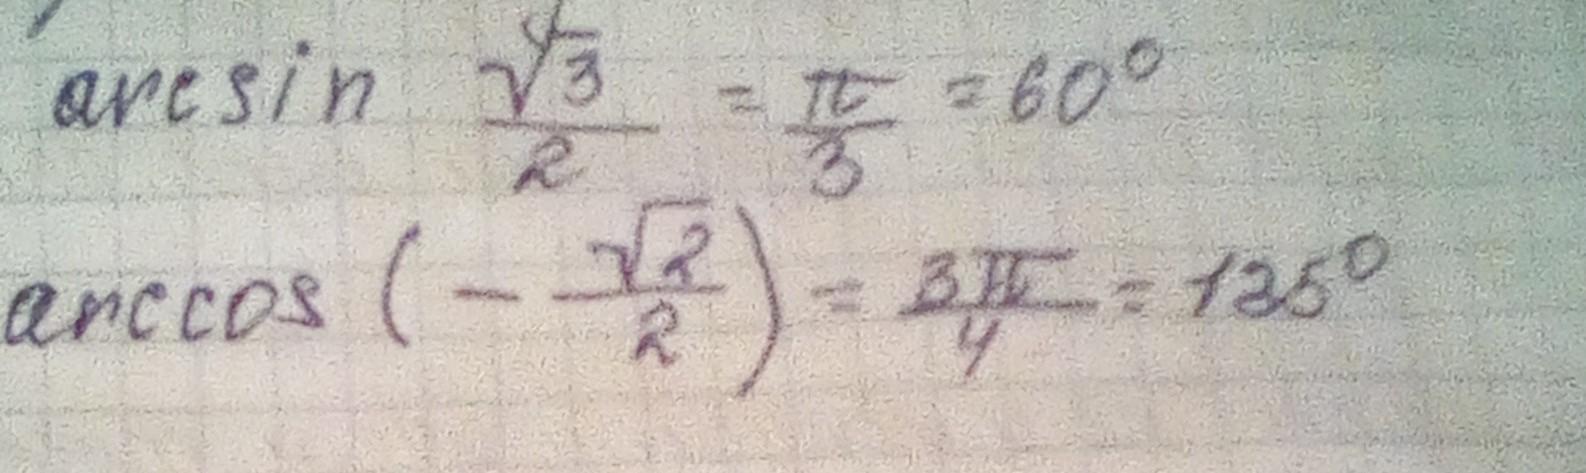 arcsin √3/2 = π/3 = 60°
arccos (-√2/2) = 3π/4 = 135°